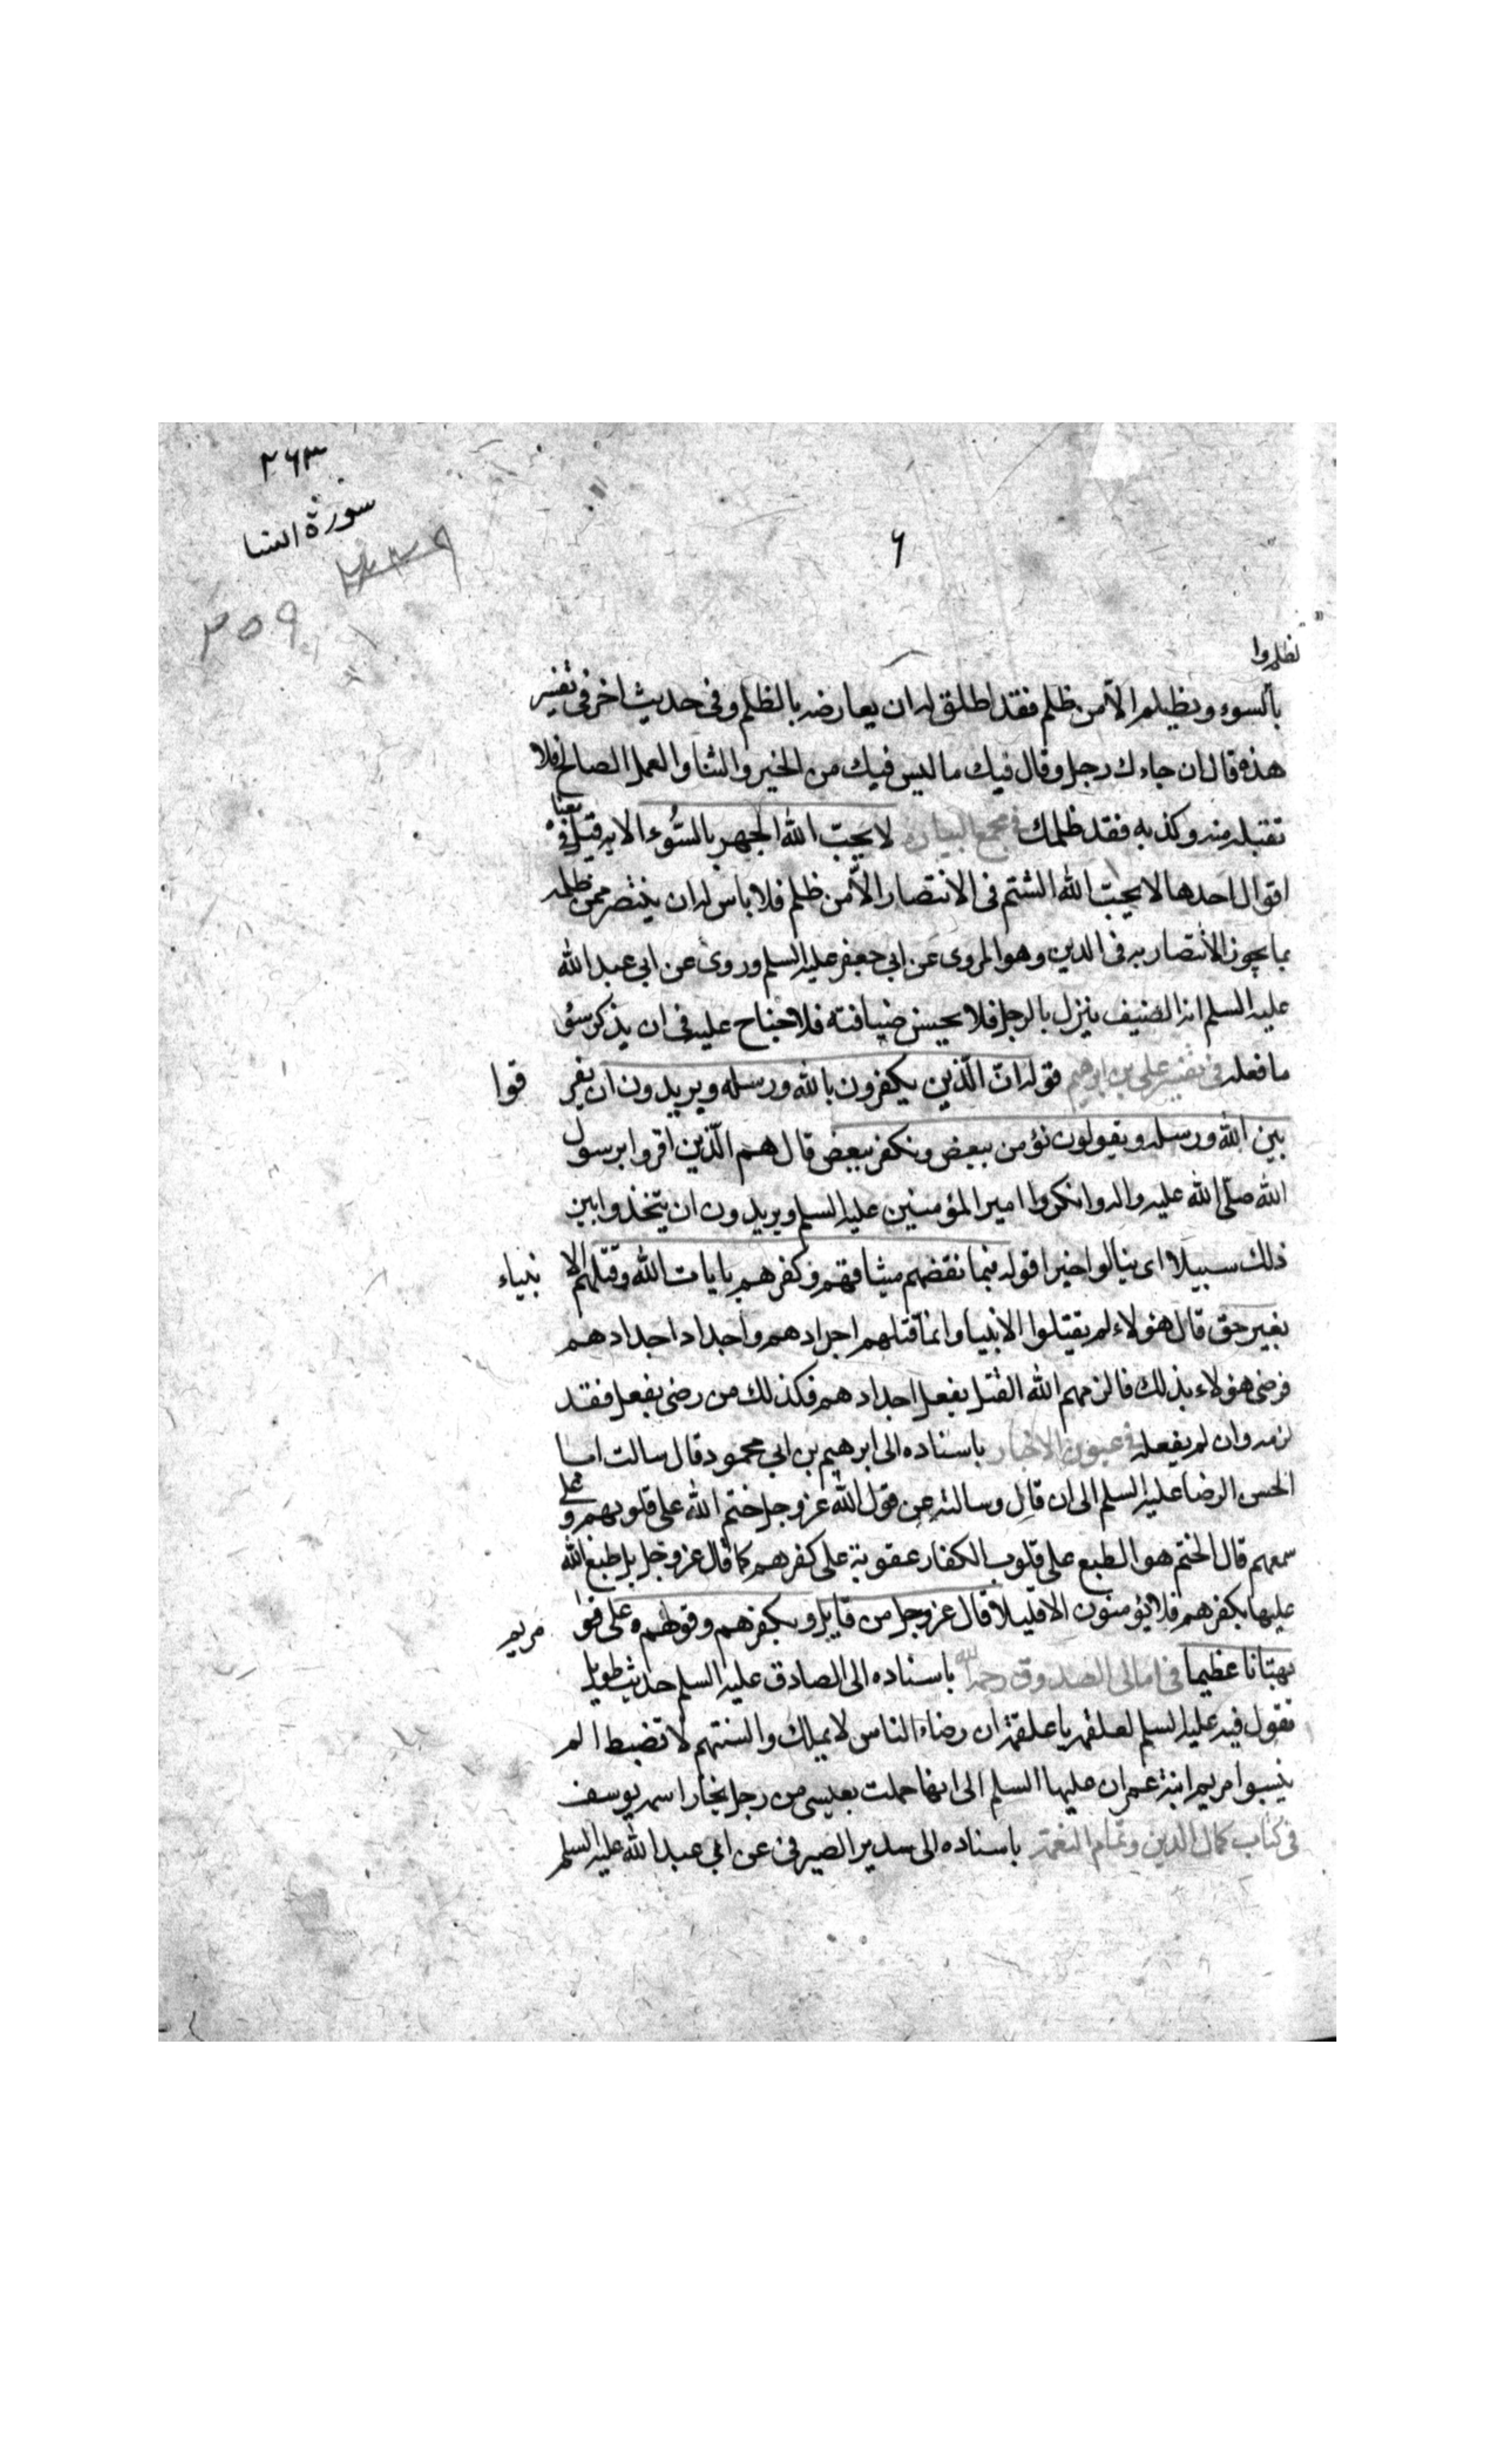 ۲۶۳
سورة النسا
۲۵۹
۶
نظلموا
بالسوء ويظلم الا من ظلم فقد اطلق له ان يعارضه بالظلم وفى حديث اخر فى تفسير
هذه قال ان جاءك رجل وقال فيك ما ليس فيك من الخير والثنا والعمل الصالح فلا
تقبله منه وكذبه فقد ظلمك فى مجمع البيان لا يحب الله الجهر بالسُّوء الايه قيل فى معنا
اقوال احدها لا يحب الله الشتم فى الانتصار الا من ظلم فلا باس له ان ينتصر ممن ظلمه
بما يجوز الانتصار به فى الدين وهو المروى عن ابى جعفر عليه السلم وروى عن ابى عبد الله
عليه السلم انه الضيف ينزل بالرجل فلا يحسن ضيافته فلا جناح عليه فى ان يذكر سئو
ما فعله فى تفسير على بن ابرهيم قوله انّ الّذين يكفرون بالله ورسله ويريدون ان يفر قوا
بين الله ورسله ويقولون نؤمن ببعض ونكفر ببعض قال هم الّذين اقروا برسول
الله صلّى الله عليه واله وانكروا امير المؤمنين عليه السلم ويريدون ان يتخذوا بين
ذلك سبيلا اى ينالوا خيرا قوله فبما نقضهم ميثاقهم وكفرهم بايات الله وقتلهم الا نبياء
بغير حق قال هؤلاء لم يقتلوا الانبيا وانما قتلهم اجدادهم واجداد اجدادهم
فرضى هؤلاء بذلك فالزمهم الله القتل بفعل اجدادهم فكذلك من رضى بفعل فقد
لزمه وان لم يفعله فى عيون الاخبار باسناده الى ابرهيم بن ابى محمود قال سالت ابا
الحسن الرضا عليه السلم الى ان قال وسالته عن قول الله عز وجل ختم الله على قلوبهم وعلى
سمعهم قال الختم هو الطبع على قلوب الكفار عقوبة على كفرهم كما قال عز وجل بل طبع الله
عليها بكفرهم فلا يؤمنون الا قليلا قال عز وجل من قايل وبكفرهم وقولهم على مريم
بهتانا عظيما فى امالى الصدوق رحمه الله باسناده الى الصادق عليه السلم حديث طويل
تقول فيه عليه السلم لعلقمه يا علقمة ان رضاء الناس لا يملك والسنتهم لا تضبط الم
ينسبوا مريم ابنة عمران عليها السلم الى انها حملت بعيسى من رجل نجار اسمه يوسف
فى كتاب كمال الدين وتمام النعمة باسناده الى سدير الصيرفى عن ابى عبد الله عليه السلم